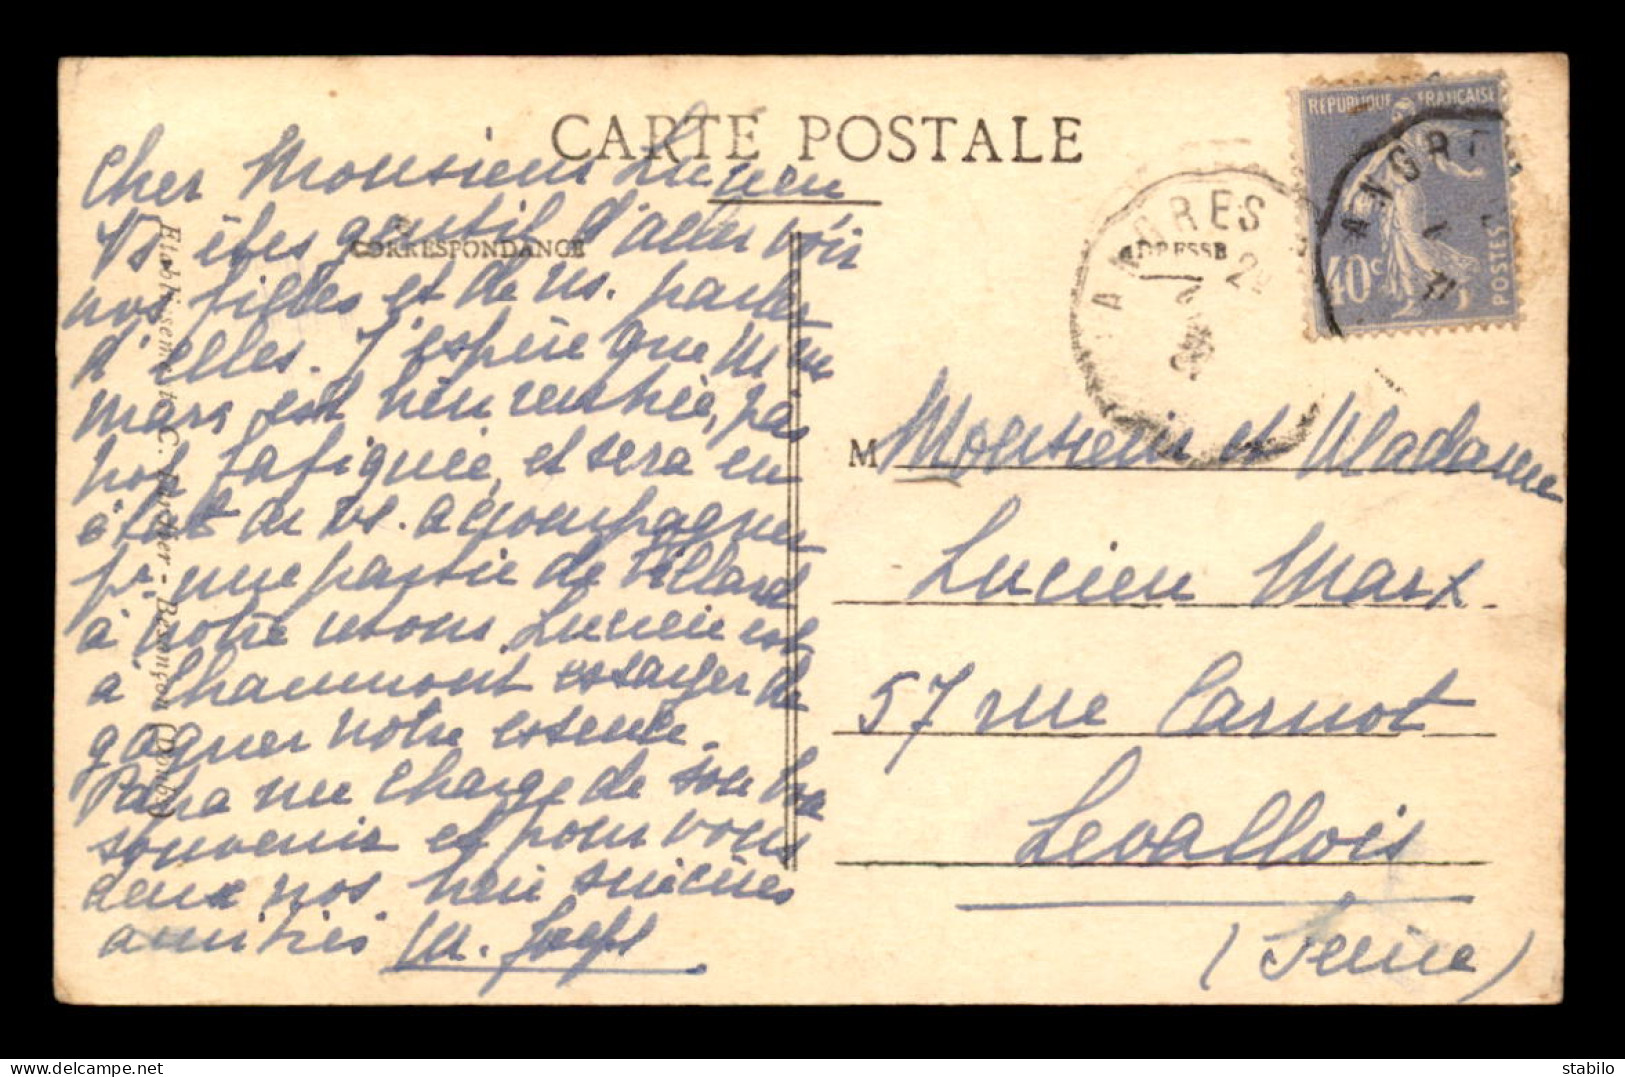 CARTE POSTALE
Cher Monsieur Lucien
CORRESPONDANCE
Vs êtes gentil d'aller voir
nos filles et de ns. parler
d'elles. J'espère que Mme
Marx est bien rentrée, pas
trop fatiguée, et sera en
état de vs. accompagner
pr. une partie de billard
à notre retour. Lucien est
à Chaumont essayer de
gagner notre essence.
Papa me charge de son bon
souvenir et pour vous
deux nos bien sincères
amitiés M.
Etablissements C. - Besançon (Doubs)
REPUBLIQUE FRANCAISE
40c
POSTES
LANGRES
ADRESSE
M Monsieur et Madame
Lucien Marx
57 rue Carnot
Levallois
(Seine)
delcampe.net
stampzilo